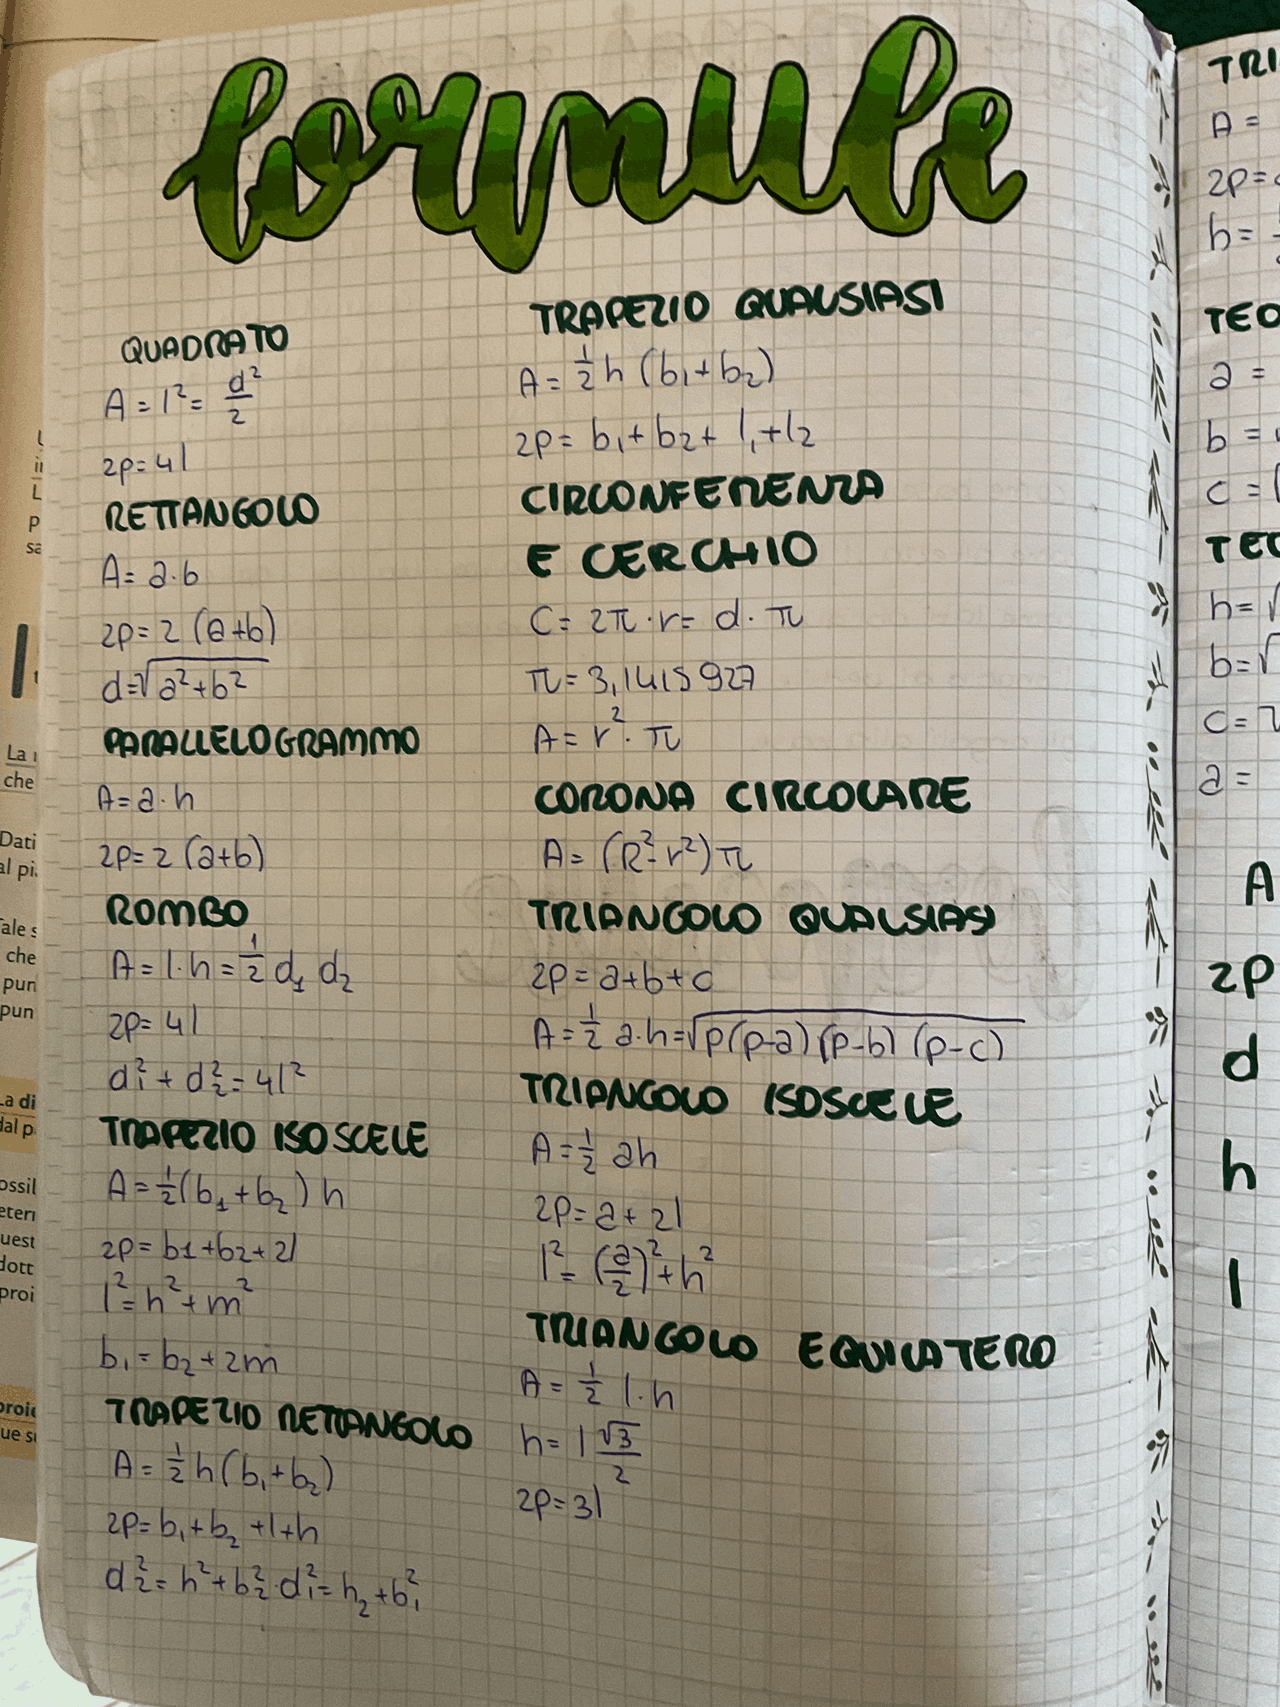 formule
QUADRATO
A = l² = d²/2
2p = 4l
RETTANGOLO
A = a·b
2p = 2 (a+b)
d = √a²+b²
PARALLELOGRAMMO
A = a·h
2p = 2 (a+b)
ROMBO
A = l·h = 1/2 d₁ d₂
2p = 4l
d₁² + d₂² = 4l²
TRAPEZIO ISOSCELE
A = 1/2 (b₁+b₂) h
2p = b1+b2+2l
l² = h²+m²
b₁ = b₂+2m
TRAPEZIO RETTANGOLO
A = 1/2 h(b₁+b₂)
2p = b₁+b₂+l+h
d₂² = h²+b₂² · d₁² = h₂+b₁²
TRAPEZIO QUALSIASI
A = 1/2 h (b₁+b₂)
2p = b₁+b₂+l₁+l₂
CIRCONFERENZA
E CERCHIO
C = 2π·r = d·π
π = 3,1415927
A = r²·π
CORONA CIRCOLARE
A = (R²-r²)π
TRIANGOLO QUALSIASI
2p = a+b+c
A = 1/2 a·h = √p(p-a)(p-b)(p-c)
TRIANGOLO ISOSCELE
A = 1/2 ah
2p = a+2l
l² = (a/2)²+h²
TRIANGOLO EQUILATERO
A = 1/2 l·h
h = l √3/2
2p = 3l
A =
2p =
h =
a =
b =
c = √
h = √
b = √
c =
a =
A
2p
d
h
l
La
che
Dati
che
pun
pun
La di